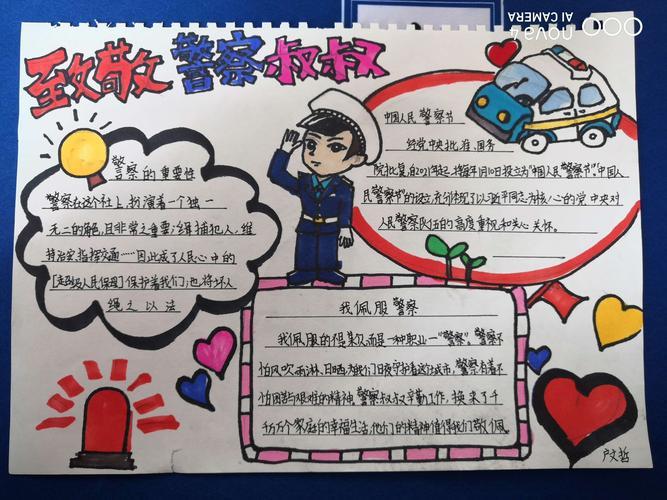 致敬警察叔叔
nova4
AI CAMERA
警察的重要性
警察在这个社上扮演着一个独一
无二的角色,且非常之重要:缉捕犯人,维
持治安,指挥交通……因此成了人民心中的
[超级人民保理]保护着我们;也将坏人
绳之以法
中国人民警察节
经党中央批准、国务
院批复,自2021年起,将每年1月10日设立为"中国人民警察节".中国人
民警察节"的设立,充分体现了以习近平同志为核心的党中央对
人民警察队伍的高度重视和关心关怀。
我佩服警察
我佩服的不是某人而是一种职业—"警察"。警察不
怕风吹雨淋、日晒为我们日夜守护着这片城市,警察有着不
怕困苦艰难的精神,警察叔叔辛勤工作,换来了千
千万万个家庭的幸福生活,他们的精神值得我们敬佩
卢文哲